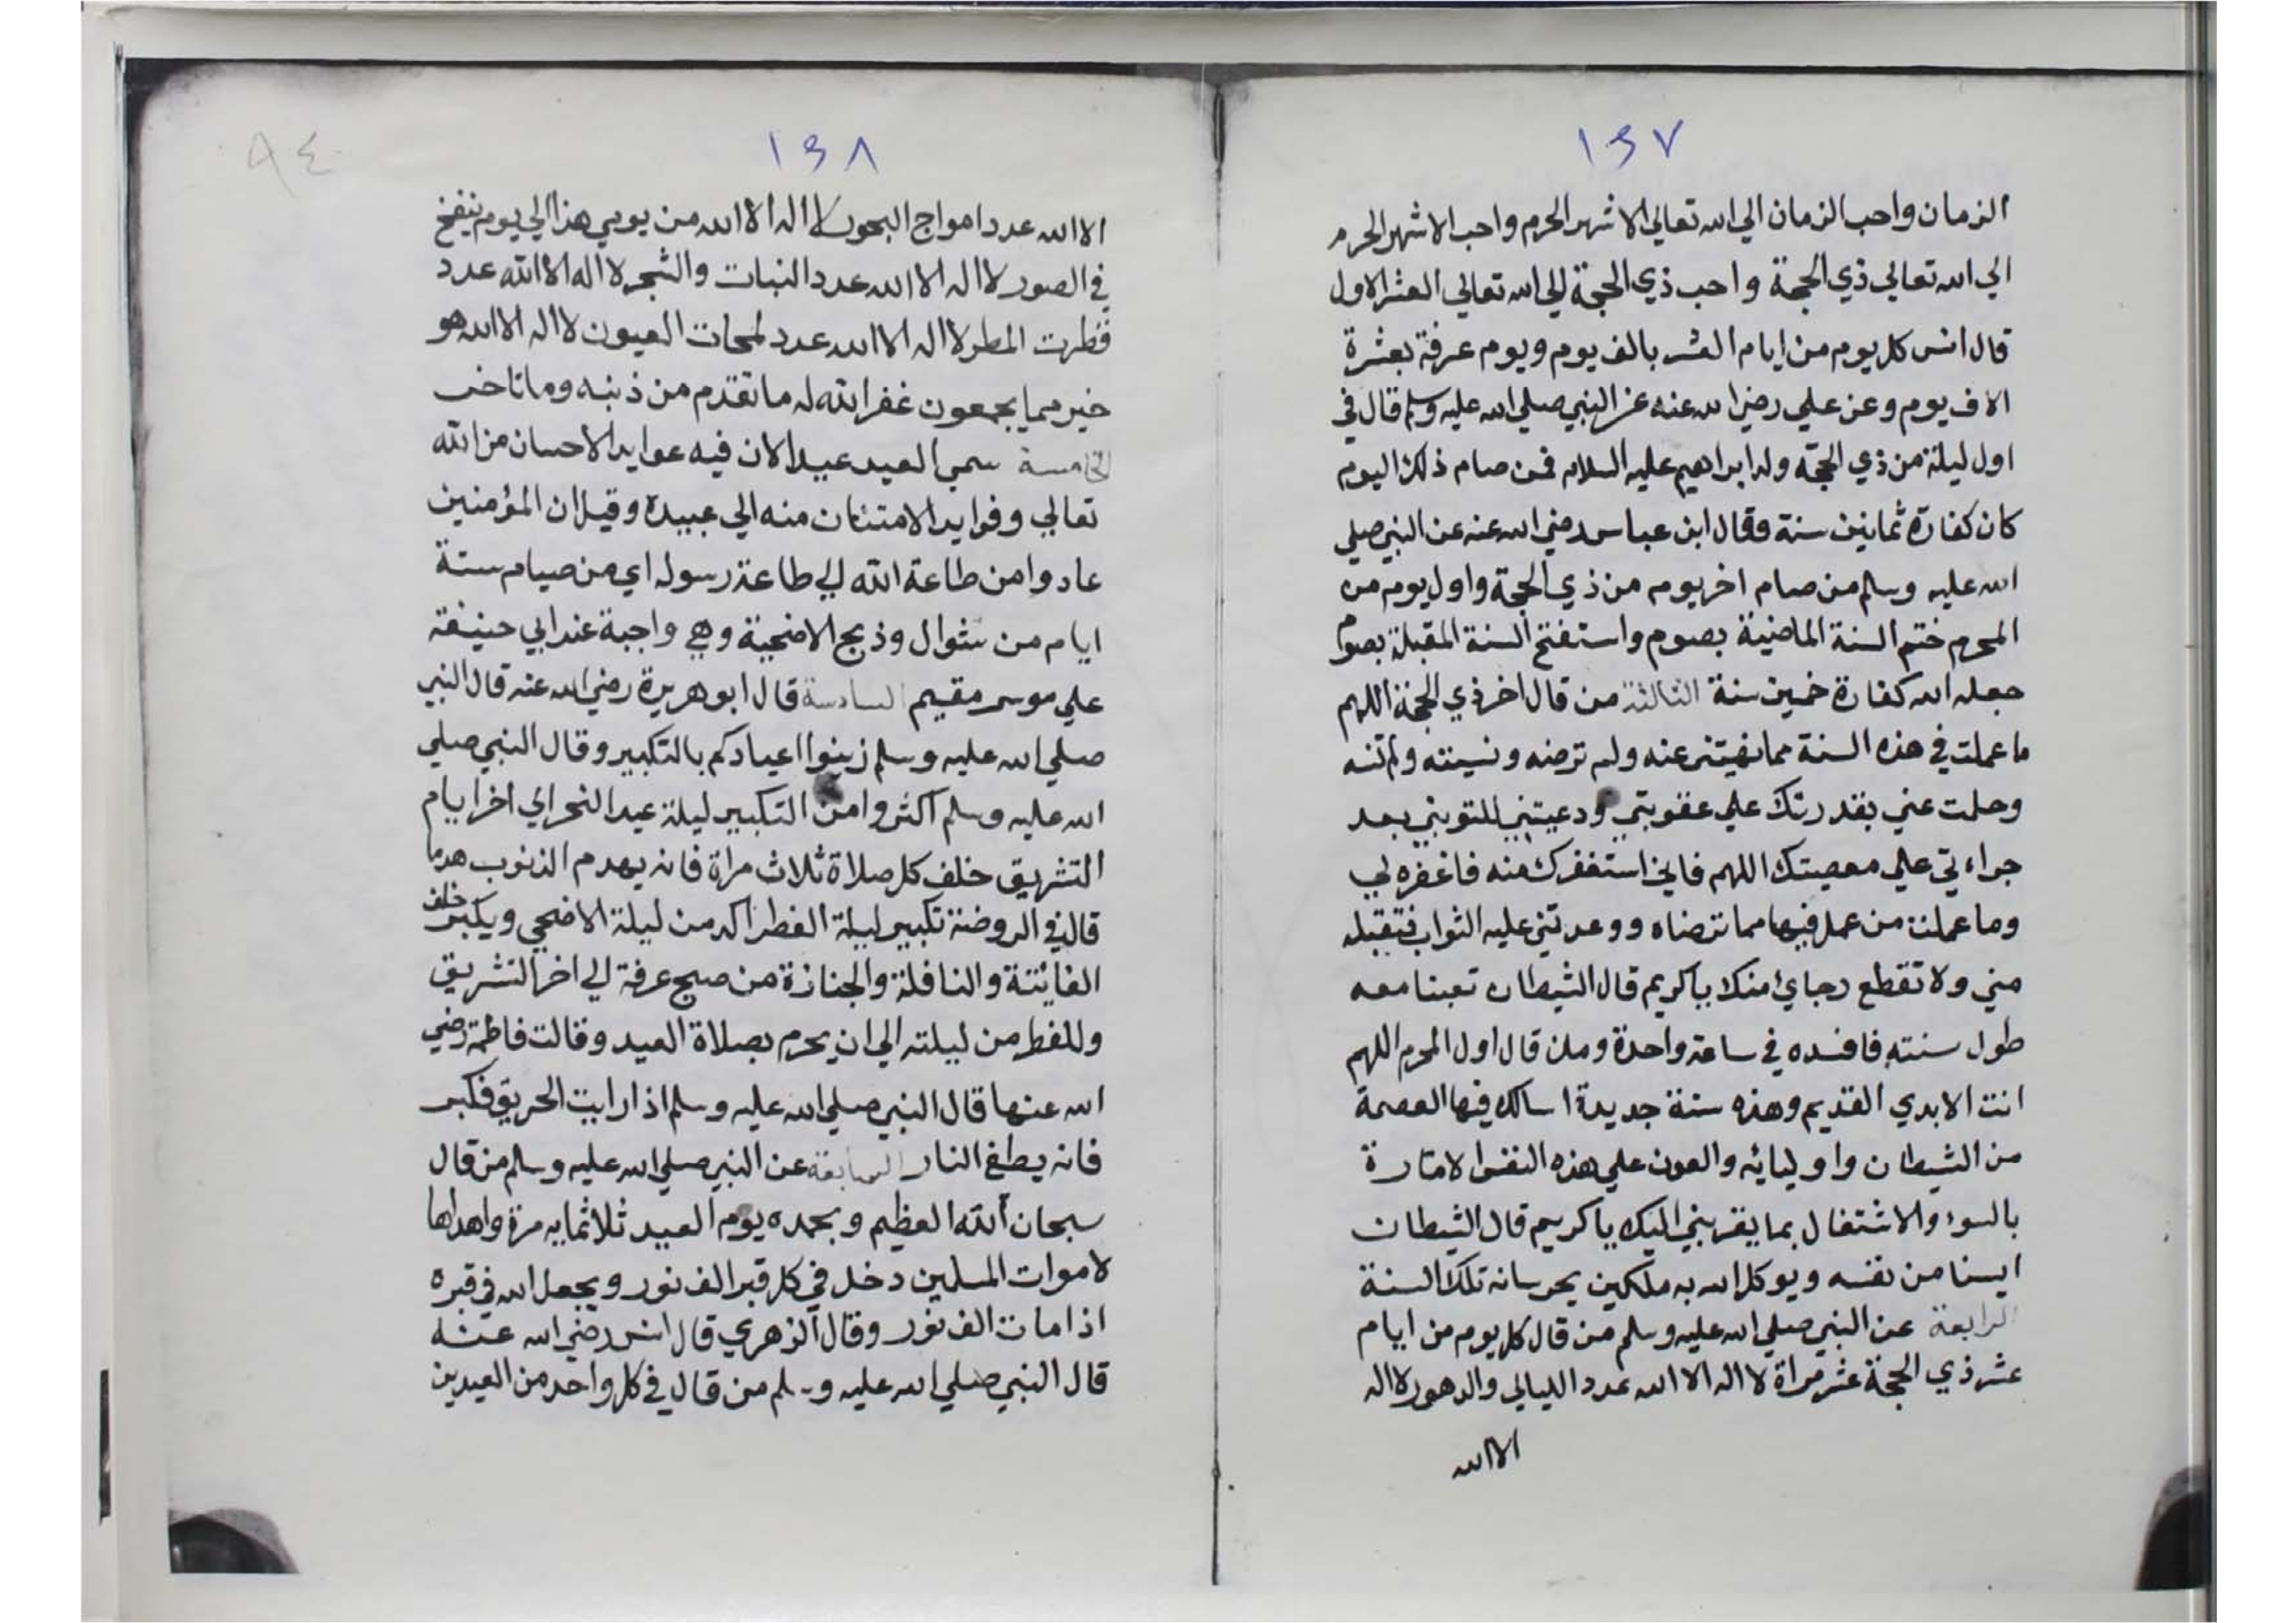 ١٣٧
الزمان واحب الزمان الي الله تعالي الاشهر الحرم واحب الاشهر الحرم
الي الله تعالي ذي الحجة واحب ذي الحجة الي الله تعالي العشر الاول
قال انس كل يوم من ايام العشر بالف يوم ويوم عرفة بعشرة
الاف يوم وعن علي رضي الله عنه عن النبي صلي الله عليه وسلم قال في
اول ليلة من ذي الحجة ولد ابراهيم عليه السلام فمن صام ذلك اليوم
كان كفارة ثمانين سنة وقال ابن عباس رضي الله عنه عن النبي صلي
الله عليه وسلم من صام اخر يوم من ذي الحجة واول يوم من
المحرم ختم السنة الماضية بصوم واستفتح السنة المقبلة بصوم
جعله الله كفارة خمسين سنة الثالثة من قال اخر ذي الحجة اللهم
ما عملت في هذه السنة مما نهيتني عنه ولم ترضه ونسيته ولم تنسه
وحلمت عني بقدرتك علي عقوبتي ودعيتني للتوبني بعد
جراءتي علي معصيتك اللهم فاني استغفرك منه فاغفره لي
وما عملت من عمل فيها مما ترضاه ووعدتني عليه الثواب فتقبله
مني ولا تقطع رجائ منك ياكريم قال الشيطان تعبنا معه
طول سنته فافسده في ساعة واحدة ومان قال اول المحرم اللهم
انت الابدي القديم وهذه سنة جديدة اسالك فيها العصمة
من الشيطان واوليائه والعون علي هذه النفس الامارة
بالسوء والاشتغال بما يقربني اليك ياكريم قال الشيطان
ايسنا من نفسه ويوكل الله به ملكين يحرسانه تلك السنة
الرابعة عن النبي صلي الله عليه وسلم من قال كل يوم من ايام
عشر ذي الحجة عشر مراة لا اله الا الله عدد الليالي والدهور لا اله
الا الله
١٣٨
٩٤
الا الله عدد امواج البحور لا اله الا الله من يومي هذا الي يوم ينفخ
في الصور لا اله الا الله عدد النبات والشجر لا اله الا الله عدد
قطرت المطر لا اله الا الله عدد لمحات العيون لا اله الا الله هو
خير مما يجمعون غفر الله له ما تقدم من ذنبه وما تاخر
الخامسة سمي العيد عيدا لان فيه عوايد الاحسان من الله
تعالي وفوايد الامتنان منه الي عبيده وقيل ان المؤمنين
عادوا من طاعة الله الي طاعة رسوله اي من صيام ستة
ايام من شوال وذبح الاضحية وهي واجبة عند ابي حنيفة
علي موسر مقيم السادسة قال ابو هريرة رضي الله عنه قال النبي
صلي الله عليه وسلم زينوا اعيادكم بالتكبير وقال النبي صلي
الله عليه وسلم اكثروا من التكبير ليلة عيد النحر الي اخر ايام
التشريق خلف كل صلاة ثلاث مراة فانه يهدم الذنوب هدما
قال في الروضة تكبير ليلة الفطر اكد من ليلة الاضحي ويكبر خلف
الفائتة والنافلة والجنازة من صبح عرفة الي اخر التشريق
وللفطر من ليلته الي ان يحرم بصلاة العيد وقالت فاطمة رضي
الله عنها قال النبي صلي الله عليه وسلم اذا رايت الحريق فكبر
فانه يطفي النار السابعة عن النبي صلي الله عليه وسلم من قال
سبحان الله العظيم وبحمده يوم العيد ثلاثمايه مرة واهداها
لاموات المسلمين دخل في كل قبر الف نور ويجعل الله في قبره
اذا مات الف نور وقال الزهري قال انس رضي الله عنه
قال النبي صلي الله عليه وسلم من قال في كل واحد من العيدين